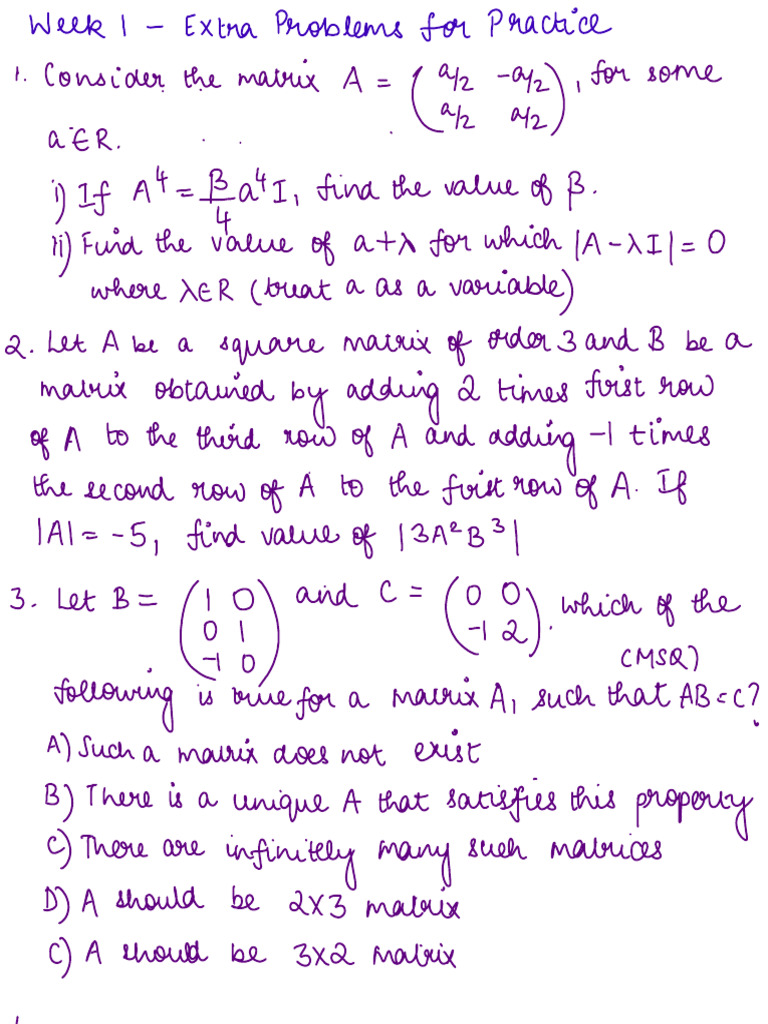 Week 1 – Extra Problems for Practice
1. Consider the matrix A = (a/2 -a/2), for some
(a/2 a/2)
a ∈ R.
i) If A⁴ = β/4 a⁴ I, find the value of β.
ii) Find the value of a+λ for which |A-λI| = 0
where λ∈R (treat a as a variable)
2. Let A be a square matrix of order 3 and B be a
matrix obtained by adding 2 times first row
of A to the third row of A and adding -1 times
the second row of A to the first row of A. If
|A| = -5, find value of |3A²B³|
3. Let B = (1 0) and C = (0 0). which of the
(0 1) (-1 2)
(-1 0) (MSQ)
following is true for a matrix A, such that AB=C?
A) Such a matrix does not exist
B) There is a unique A that satisfies this property
C) There are infinitely many such matrices
D) A should be 2x3 matrix
C) A should be 3x2 matrix